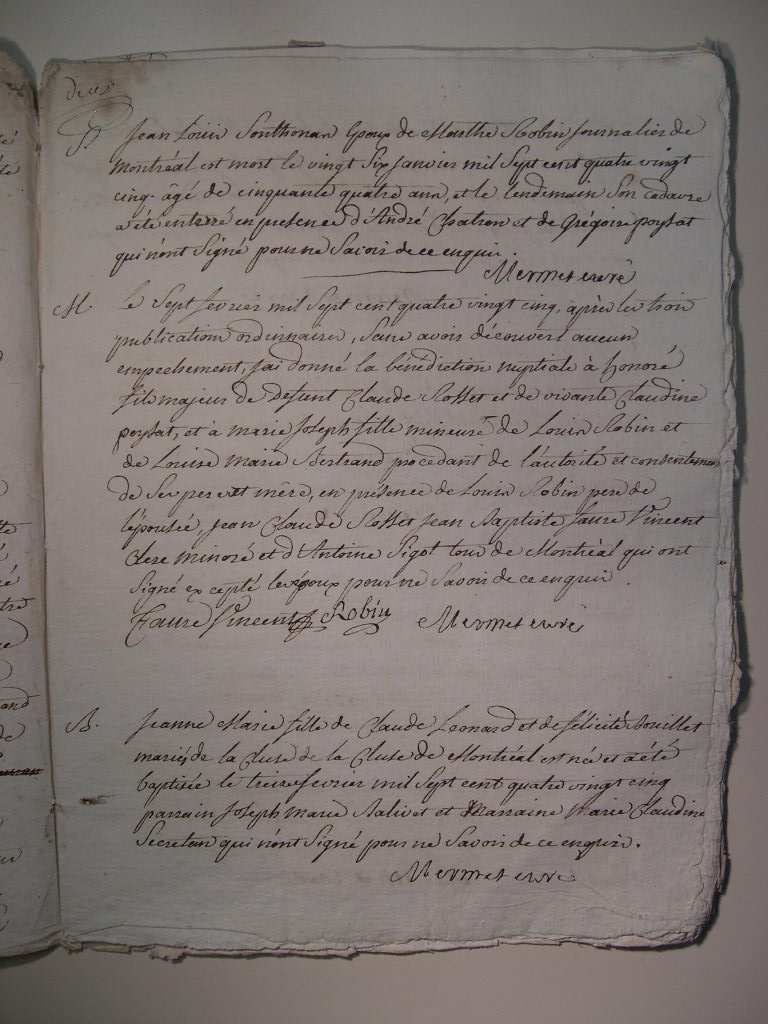 deces
Jean Louis Sonthonax Epoux de Marthe Robin Journalier de
Montréal est mort le vingt Six Janvier mil Sept cent quatre vingt
cinq âgé de cinquante quatre ans, et le lendemain Son cadavre
a été enterré en presence d'André Chatron et de Grégoire peysat
qui n'ont Signé pour ne Savoir de ce enquis.
Mermet curé
M. le Sept fevrier mil Sept cent quatre vingt cinq, après les trois
publications ordinnaires, Sans avoir découvert aucun
empechement, j'ai donné la bénédiction nuptiale à honoré
fils majeur de defunt Claude Rosset et de vivante Claudine
peysat, et à marie Joseph fille mineure de Louis Robin et
de Louise Marie Bertrand procedant de l'autorité et consentement
de Ses pere et mère, en présence de Louis Robin pere de
l'épousée, Jean Claude Rosset Jean Baptiste faure Vincent
Clerc minoré et d'Antoine Sigot tous de Montréal qui ont
Signé excepté l'epoux pour ne Savoir de ce enquis.
Faure Vincent Robin Mermet curé
B. Jeanne Marie fille de Claude Leonard et de félicité Bouillet
mariés de la Cluse de la Cluse de Montréal est née et a été
baptisée le treize fevrier mil Sept cent quatre vingt cinq
parrain Joseph Marie Salivet et Marraine Marie Claudine
Secretan qui n'ont Signé pour ne Savoir de ce enquis.
Mermet curé